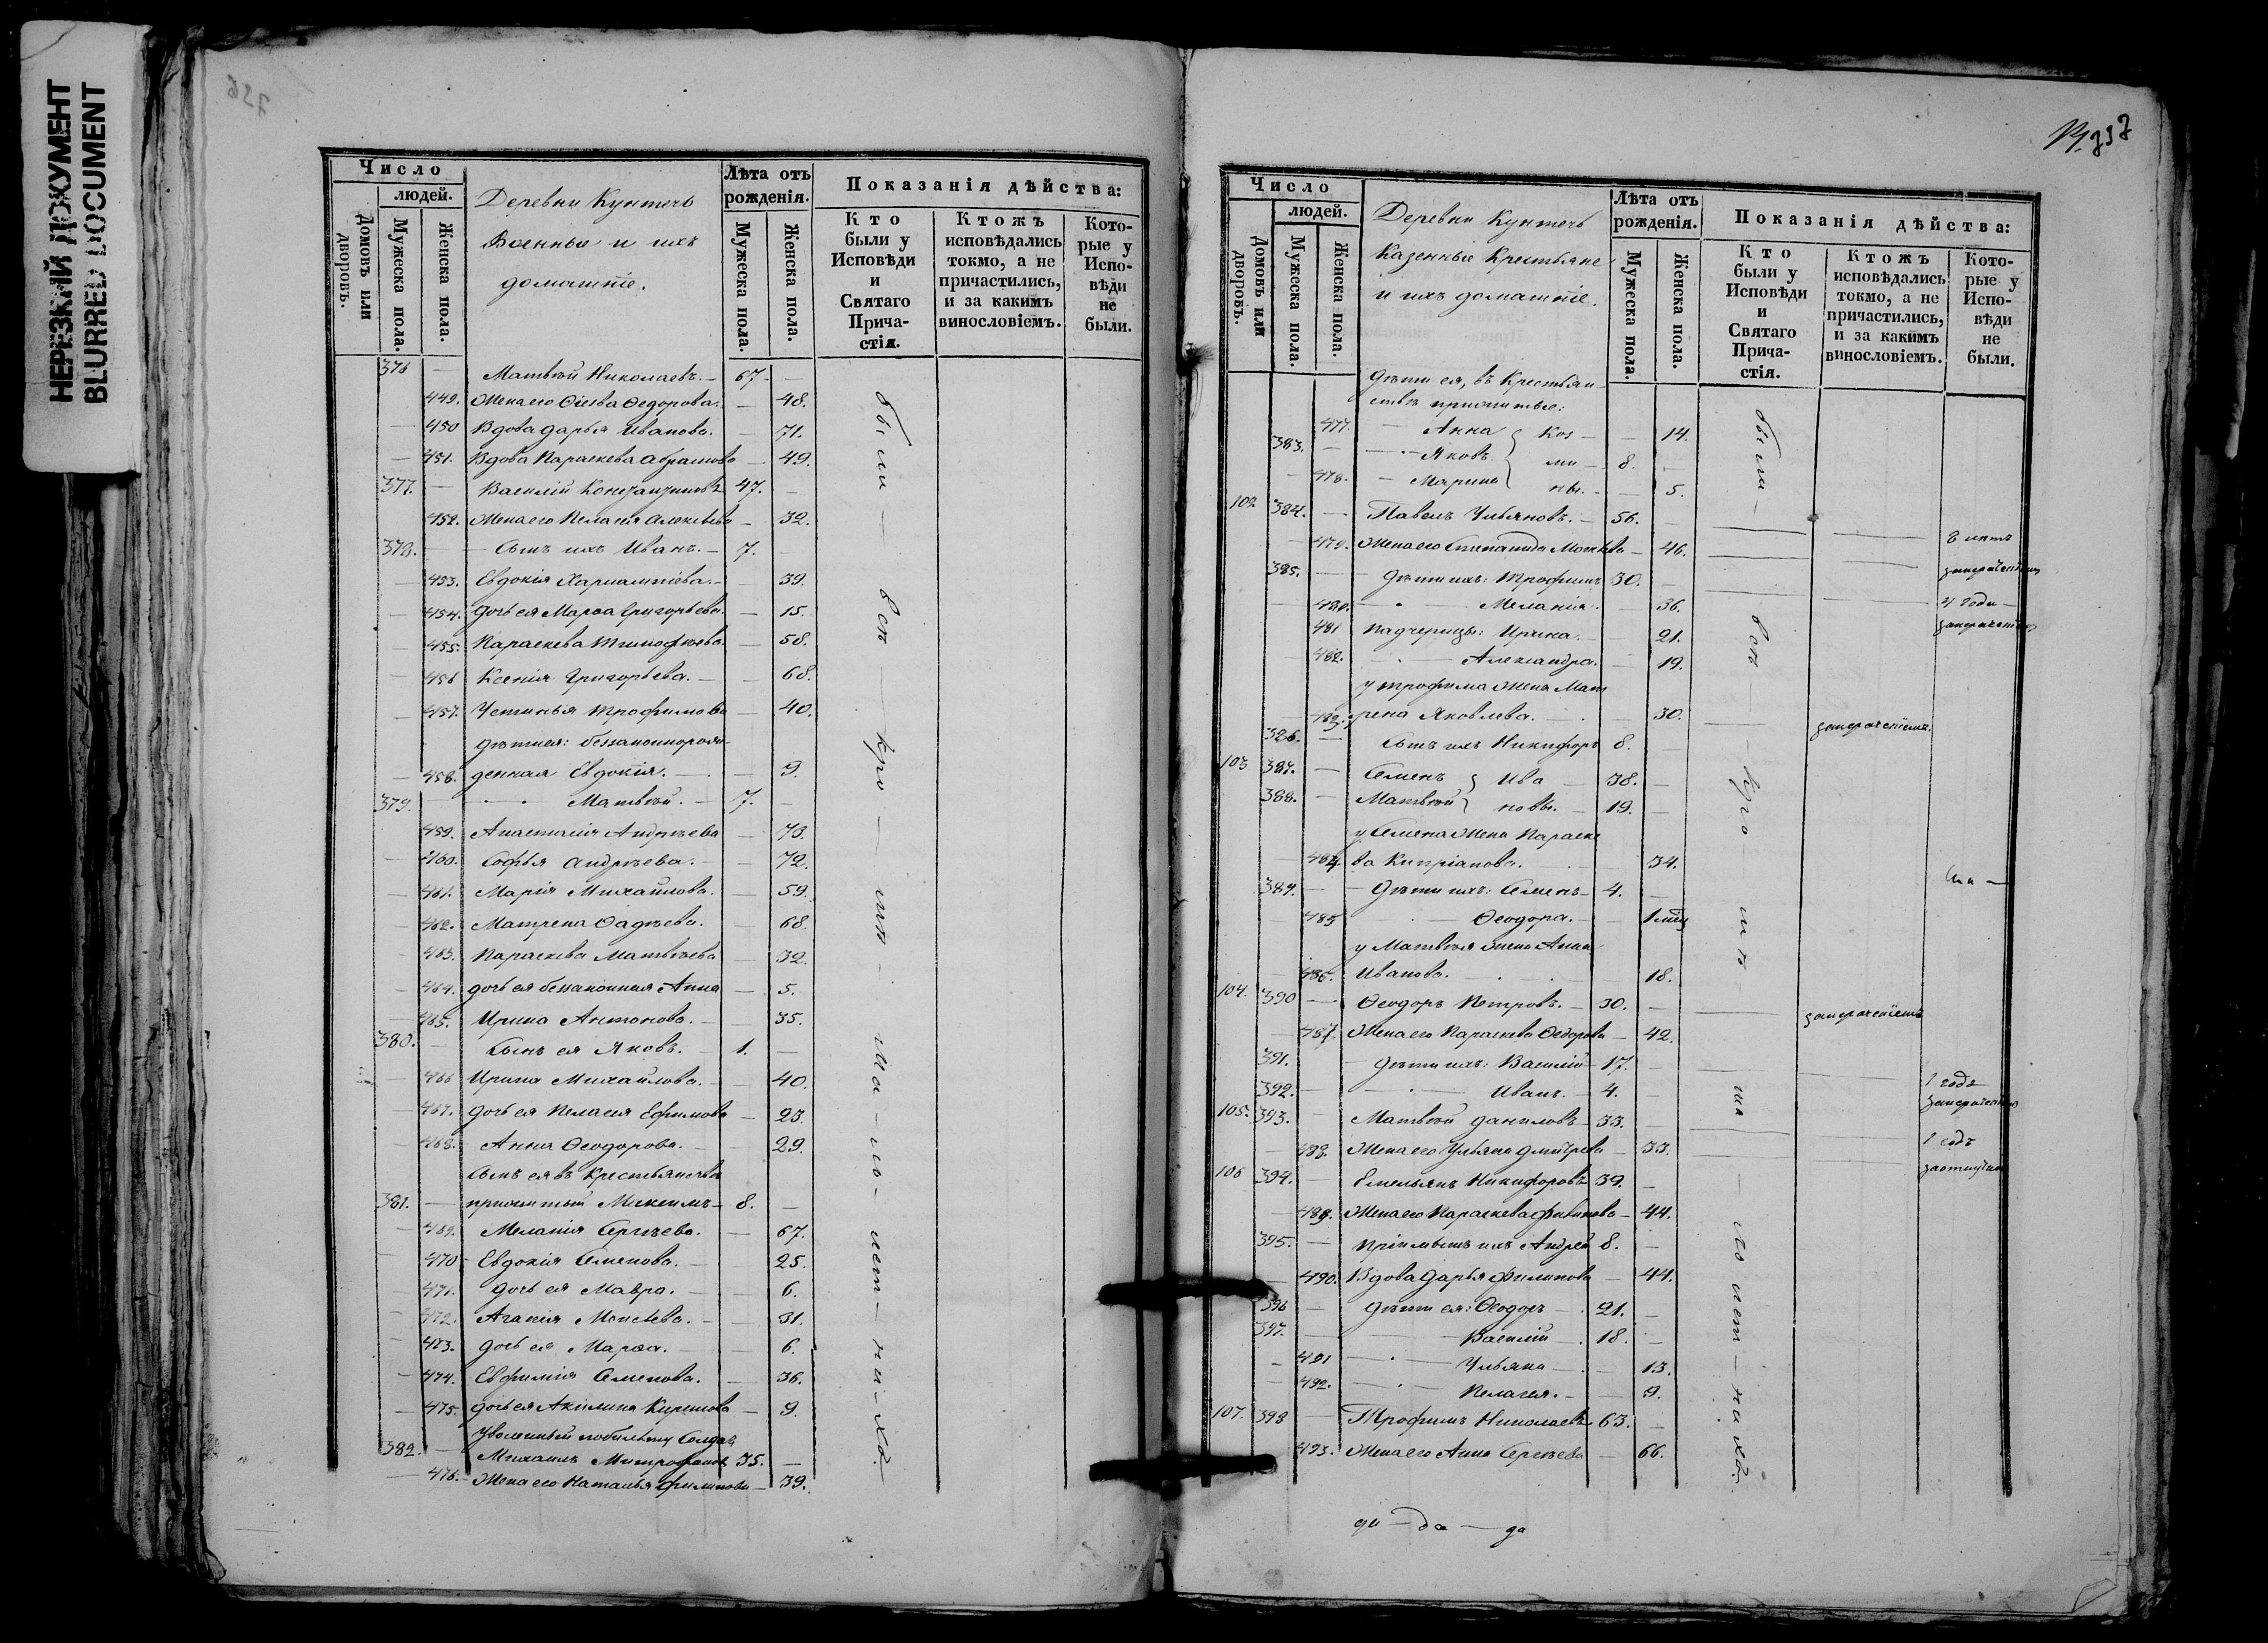 НЕРЕЗКИЙ ДОКУМЕНТ
BLURRED DOCUMENT
Число
людей.
Домовъ или дворовъ.
Мужеска пола.
Женска пола.
Деревни Кунтечь
Военные и ихъ
домашніе.
Лѣта отъ рожденія.
Мужеска пола.
Женска пола.
Показанія дѣйства:
Кто были у Исповѣди и Святаго Причастія.
Ктожъ исповѣдались токмо, а не причастились, и за какимъ винословіемъ.
Которые у Исповѣди не были.
376 — Матвѣй Николаевъ. — 67. —
449. Жена его Ѳедорова. — 48.
— 450 Вдова Дарья Иванова. — 71.
— 451. Вдова Параскева Абрамова — 49.
377. — Василій Константиновъ 47. —
452. Жена его Пелагея Алексѣева — 32.
378. — Сынъ ихъ Иванъ. — 7.
— 453. Евдокія Харлампіева. — 39.
— 454. Дочь ея Марѳа Григорьева. — 15.
— 455. Параскева Тимофѣева. — 58.
— 456 Ксенія Григорьева. — 68.
— 457. Устинья Трофимова — 40.
Дѣти ея: беззаконнорож
— 458. денная Евдокія. — 9.
379. — Матвѣй. — 7. —
459. Анастасія Андрѣева — 73.
— 460. Софья Андрѣева. — 72.
— 461. Марія Михайлова. — 59.
— 462. Матрена Ѳадѣева. — 68.
— 463. Параскева Матвѣева — 32.
— 464. дочь ея беззаконная Анна — 5.
— 465. Ирина Антонова. — 35.
380. — Сынъ ея Яковъ. — 1. —
— 466 Ирина Михайлова. — 40.
— 467. дочь ея Пелагея Ефимова — 23.
— 468. Анна Ѳеодорова. — 29.
Сынъ ея въ крестьянствѣ
381. — прижитый Максимъ — 8. —
— 469. Меланія Сергѣева. — 67.
— 470 Евдокія Семенова. — 25.
— 471. дочь ея Мавра. — 6.
— 472. Агапія Моисѣева. — 31.
— 473. дочь ея Марѳа. — 6.
— 474. Евфимія Семенова. — 36.
— 475. дочь ея Акилина — 9.
Уволенный Солдатъ
382. — Михаилъ Митрофановъ 35. —
— 476. Жена его Наталья Филипова — 39.
были — всѣ — кро — мѣ — ма — ло — лет — ни — хъ.
757
Число
людей.
Домовъ или дворовъ.
Мужеска пола.
Женска пола.
Деревни Кунтечь
Казенные Крестьяне
и ихъ домашніе.
Лѣта отъ рожденія.
Мужеска пола.
Женска пола.
Показанія дѣйства:
Кто были у Исповѣди и Святаго Причастія.
Ктожъ исповѣдались токмо, а не причастились, и за какимъ винословіемъ.
Которые у Исповѣди не были.
Дѣти ея, въ крестьян
ствѣ прижитые:
477. — Анна Коз — 14.
383. — Яковъ ми — 8. —
— 478. — Марина ны. — 5.
102 384. — Павелъ Ульяновъ. — 56. —
— 479. Жена его Степанида — 46. 8 лѣтъ
385. — Дѣти ихъ: Трофимъ 30. —
— 480. — Меланія. — 36. 4 года —
481 Падчерицы: Ирина. — 21.
— 482. — Александра. — 19.
у Трофима жена Мат
— 483. рена Яковлева. — 30.
386. — Сынъ ихъ Никифоръ 8. —
103 387. — Семенъ Ива — 38. —
388. — Матвѣй новы. — 19. —
у Семена жена Параске
— 484. ва Кипріанова. — 34.
389. — Дѣти ихъ: Семенъ — 4. —
— 485 — Ѳеодора. — 1 мѣц
у Матвѣя жена Анна
— 486. Иванова. — 18.
104. 390 — Ѳеодоръ Петровъ. — 30. —
— 487. Жена его Параскева Ѳедорова — 42.
391. — Дѣти ихъ: Василій — 17. —
392. — Иванъ. — 4. — 1 годъ
105. 393. — Матвѣй Даниловъ — 33. —
— 488. Жена его Ульяна Дмитрева — 33. 1 годъ
106 394. — Емельянъ Никифоровъ 39. —
— 489. Жена его Параскева Филипова — 44.
395. — Пріемышъ ихъ Андрей 8. —
— 490. Вдова Дарья Филипова — 44.
396 — Дѣти ея: Ѳеодоръ — 21. —
397. — Василій — 18. —
— 491 — Ульяна — 13.
— 492. — Пелагея. — 9.
107. 398 — Трофимъ Николаевъ 63. —
493. Жена его Анна Сергѣева — 66.
были — всѣ — кро — мѣ — ма — ло лет — ни хъ.